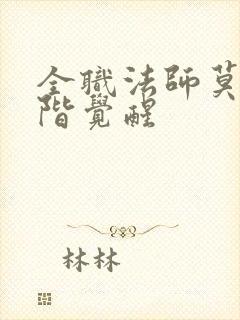 全職法師莫
階覺醒
林林